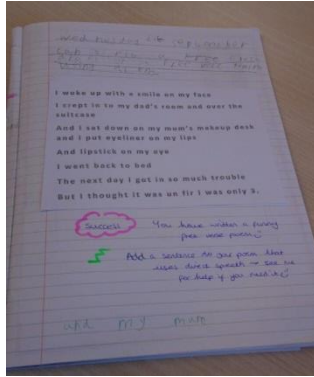 I woke up with a smile on my face
I crept in to my dad's room and over the
suitcase
And I sat down on my mom's makeup desk
and I put eyeliner on my lips
And lipstick on my eye
I went back to bed
The next day I got in so much trouble
But I thought it was un fir I was only 3.
Success
You have written a funny
free verse poem
Add a sentence to your poem that
uses direct speech → see me
for help if you need it
and my mom